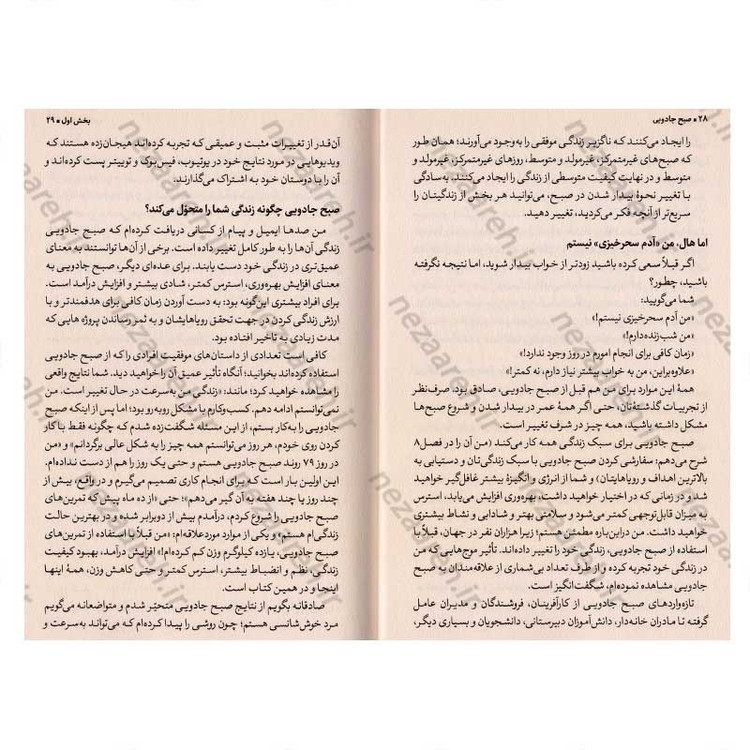 ۲۸ * صبح جادویی
را ایجاد می‌کنند که ناگزیر زندگی موفقی را به‌وجود می‌آورند؛ همان طور
که صبح‌های غیرمتمرکز، غیرمولد و متوسط، روزهای غیرمتمرکز، غیرمولد و
متوسط و در نهایت کیفیت متوسطی از زندگی را ایجاد می‌کنند. به‌سادگی
با تغییر نحوهٔ بیدار شدن در صبح، می‌توانید هر بخش از زندگیتان را
سریع‌تر از آنچه فکر می‌کردید، تغییر دهید.
اما هال، من «آدم سحرخیزی» نیستم
اگر قبلاً سعی کرده باشید زودتر از خواب بیدار شوید، اما نتیجه نگرفته
باشید، چطور؟
شما می‌گویید:
«من آدم سحرخیزی نیستم!»
«من شب‌زنده‌دارم!»
«زمان کافی برای انجام امورم در روز وجود ندارد!»
«علاوه‌براین، من به خواب بیشتر نیاز دارم، نه کمتر!»
همهٔ این موارد برای من هم قبل از صبح جادویی، صادق بود. صرف‌نظر
از تجربیات گذشته‌تان، حتی اگر همهٔ عمر در بیدار شدن و شروع صبح‌ها
مشکل داشته باشید، همه چیز در شرف تغییر است.
صبح جادویی برای سبک زندگی همه کار می‌کند (من آن را در فصل۸
شرح می‌دهم: سفارشی کردن صبح جادویی با سبک زندگی‌تان و دستیابی به
بالاترین اهداف و رویاهایتان) و شما از انرژی و انگیزهٔ بیشتر غافل‌گیر خواهید
شد و در زمانی که در اختیار خواهید داشت. بهره‌وری افزایش می‌یابد، استرس
به میزان قابل‌توجهی کمتر می‌شود و سلامتی بهتر و شادابی و نشاط بیشتری
خواهید داشت. من دراین‌باره مطمئن هستم؛ زیرا هزاران نفر در جهان، قبلاً با
استفاده از صبح جادویی، زندگی خود را تغییر داده‌اند. تأثیر موج‌هایی که من
در زندگی خود تجربه کرده و از طرف تعداد بی‌شماری از علاقه‌مندان به صبح
جادویی مشاهده نموده‌ام، شگفت‌انگیز است.
تازه‌واردهای صبح جادویی از کارآفرینان، فروشندگان و مدیران عامل
گرفته تا مادران خانه‌دار، دانش‌آموزان دبیرستانی، دانشجویان و بسیاری دیگر،
بخش اول * ۲۹
آن‌قدر از تغییرات مثبت و عمیقی که تجربه کرده‌اند هیجان‌زده هستند که
ویدیوهایی در مورد نتایج خود در یوتیوب، فیس‌بوک و توییتر پست کرده‌اند و
آن را با دوستان خود به اشتراک می‌گذارند.
صبح جادویی چگونه زندگی شما را متحوّل می‌کند؟
من صدها ایمیل و پیام از کسانی دریافت کرده‌ام که صبح جادویی
زندگی آن‌ها را به طور کامل تغییر داده است. برخی از آن‌ها توانستند به معنای
عمیق‌تری در زندگی خود دست یابند. برای عده‌ای دیگر، صبح جادویی به
معنای افزایش بهره‌وری، استرس کمتر، شادی بیشتر و افزایش درآمد است.
برای افراد بیشتری این‌گونه بود: به دست آوردن زمان کافی برای هدفمندتر و با
ارزش زندگی کردن در جهت تحقق رویاهایشان و به ثمر رساندن پروژه هایی که
مدت زیادی به تاخیر افتاده بود.
کافی است تعدادی از داستان‌های موفقیت افرادی را که از صبح جادویی
استفاده کرده‌اند بخوانید؛ آنگاه تأثیر عمیق آن را خواهید دید. شما نتایج واقعی
را مشاهده خواهید کرد؛ مانند: «زندگی من به‌سرعت در حال تغییر است. من
نمی‌توانستم ادامه دهم. کسب‌وکارم با مشکل روبه‌رو بود؛ اما پس از اینکه صبح
جادویی را به‌کار بستم، از این مسئله شگفت‌زده شدم که چگونه فقط با کار
کردن روی خودم، هر روز می‌توانستم همه چیز را به شکل عالی برگردانم» و «من
در روز ۷۹ روند صبح جادویی هستم و حتی یک روز را هم از دست نداده‌ام.
این اولین بار است که برای انجام کاری تصمیم می‌گیرم و در واقع، بیش از
چند روز یا چند هفته به آن گیر می‌دهم»؛ حتی؛ «از ده ماه پیش که تمرین‌های
صبح جادویی را شروع کردم، درآمدم بیش از دوبرابر شده و در بهترین حالت
زندگی‌ام هستم» و یکی از موارد موردعلاقه‌ام: «من قبلاً با استفاده از تمرین‌های
صبح جادویی، یازده کیلوگرم وزن کم کرده‌ام!» افزایش درآمد، بهبود کیفیت
زندگی، نظم و انضباط بیشتر، استرس کمتر و حتی کاهش وزن، همهٔ اینها
اینجا و در همین کتاب است.
صادقانه بگویم از نتایج صبح جادویی متحیّر شدم و متواضعانه می‌گویم
مرد خوش‌شانسی هستم؛ چون روشی را پیدا کرده‌ام که می‌تواند به‌سرعت و
nezaareh.ir
nezaareh.ir
nezaareh.ir
nezaareh.ir
nezaareh.ir
nezaareh.ir